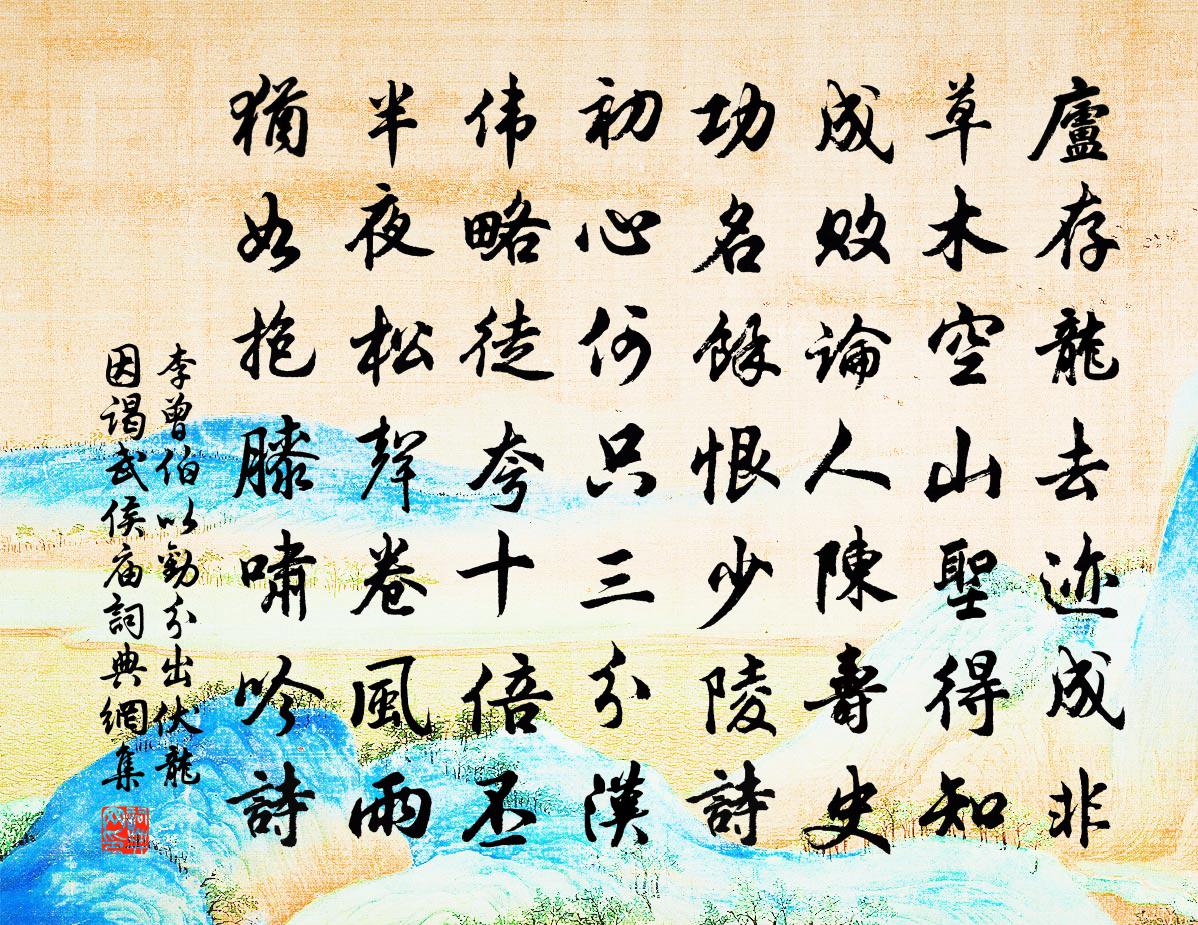 廬存龍去迹成非
草木空山聖得知
成敗論人陳壽史
功名餘恨少陵詩
初心何只三分漢
伟略徒夸十倍丕
半夜松聲卷風雨
猶如抱膝嘯吟詩
李曾伯以勸分出伏龍
因谒武侯庙詞典網集